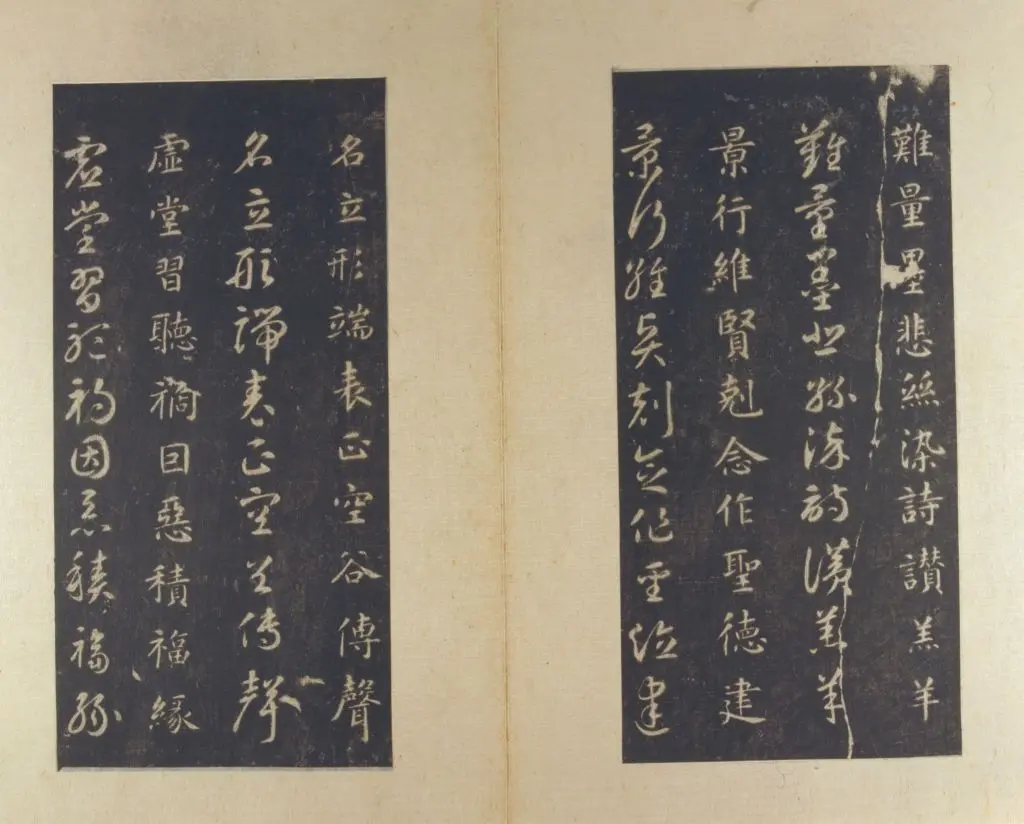 難量墨悲絲染詩讚羔羊
難量墨悲絲染詩讚羔羊
景行維賢剋念作聖德建
景行維賢剋念作聖德建
名立形端表正空谷傳聲
名立形端表正空谷傳聲
虛堂習聽禍因惡積福緣
虛堂習聽禍因惡積福緣